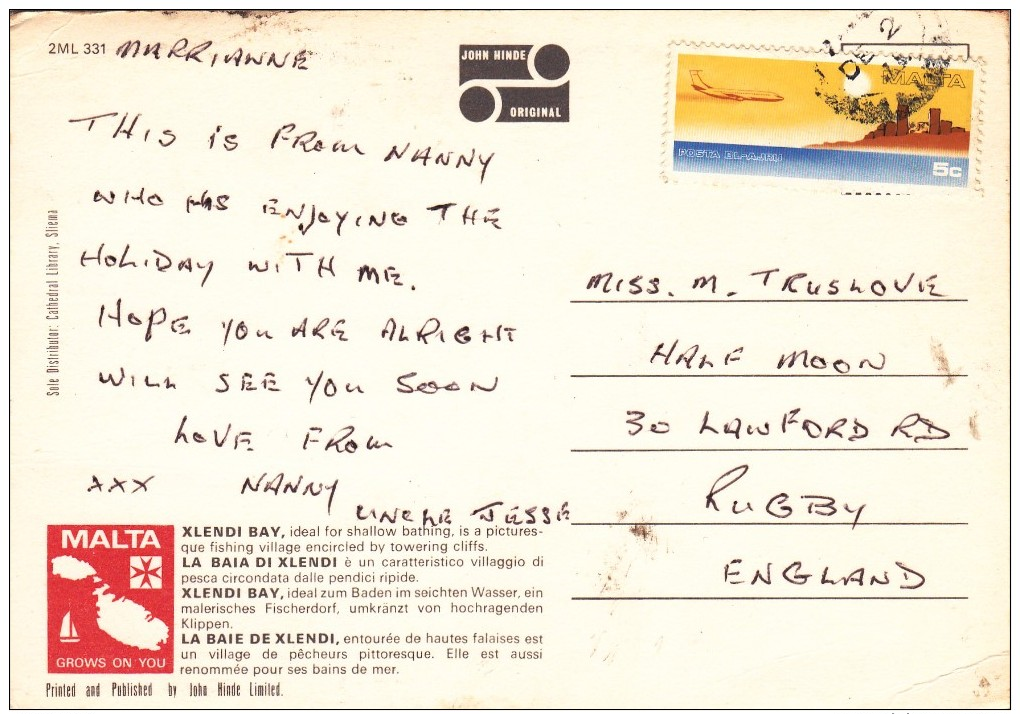 2ML 331
MARRIANNE
JOHN HINDE
ORIGINAL
THIS IS FROM NANNY
WHO HAS ENJOYING THE
HOLIDAY WITH ME.
HOPE YOU ARE ALRIGHT
WILL SEE YOU SOON
LOVE FROM
XXX NANNY
UNCLE JESSE
Sole Distributor: Cathedral Library, Sliema
MALTA
POSTA BL-AJRU
5c
MISS. M. TRUSLOVE
HALF MOON
30 LAWFORD RD
RUGBY
ENGLAND
MALTA
GROWS ON YOU
XLENDI BAY, ideal for shallow bathing, is a pictures-
que fishing village encircled by towering cliffs.
LA BAIA DI XLENDI è un caratteristico villaggio di
pesca circondata dalle pendici ripide.
XLENDI BAY, ideal zum Baden im seichten Wasser, ein
malerisches Fischerdorf, umkränzt von hochragenden
Klippen.
LA BAIE DE XLENDI, entourée de hautes falaises est
un village de pêcheurs pittoresque. Elle est aussi
renommée pour ses bains de mer.
Printed and Published by John Hinde Limited.